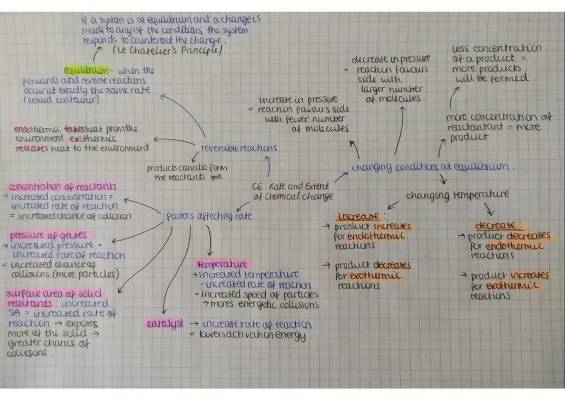 If a system is at equilibrium and a change is
made to any of the conditions, the system
responds to counteract the change.
(Le Chatelier's Principle)
equilibrium - when the
forwards and reverse reactions
occur at exactly the same rate
(sealed container)
endothermic takes heat from the
environment exothermic
releases heat to the environment
reversible reactions
products can also form
the reactants ⇌
increase in pressure
= reaction favours side
with fewer number
of molecules
decrease in pressure
= reaction favours
side with
larger number
of molecules
less concentration
of a product =
more products
will be formed
more concentration of
reactant = more
product
changing conditions at equilibrium
C6. Rate and Extent
of Chemical change
changing temperature
increase:
→ product increases
for endothermic
reactions
→ product decreases
for exothermic
reactions
decrease:
→ product decreases
for endothermic
reactions
→ product increases
for exothermic
reactions
factors affecting rate
concentration of reactants
→ increased concentration =
increased rate of reaction
= increased chance of collision
pressure of gases
→ increased pressure =
increased rate of reaction
= increased chance of
collisions (more particles)
surface area of solid
reactants: increased
SA = increased rate of
reaction → exposes
more of the solid →
greater chance of
collisions
temperature
→ increased temperature
= increased rate of reaction
- increased speed of particles
→ more energetic collisions
catalyst → increase rate of reaction
= lowers activation energy